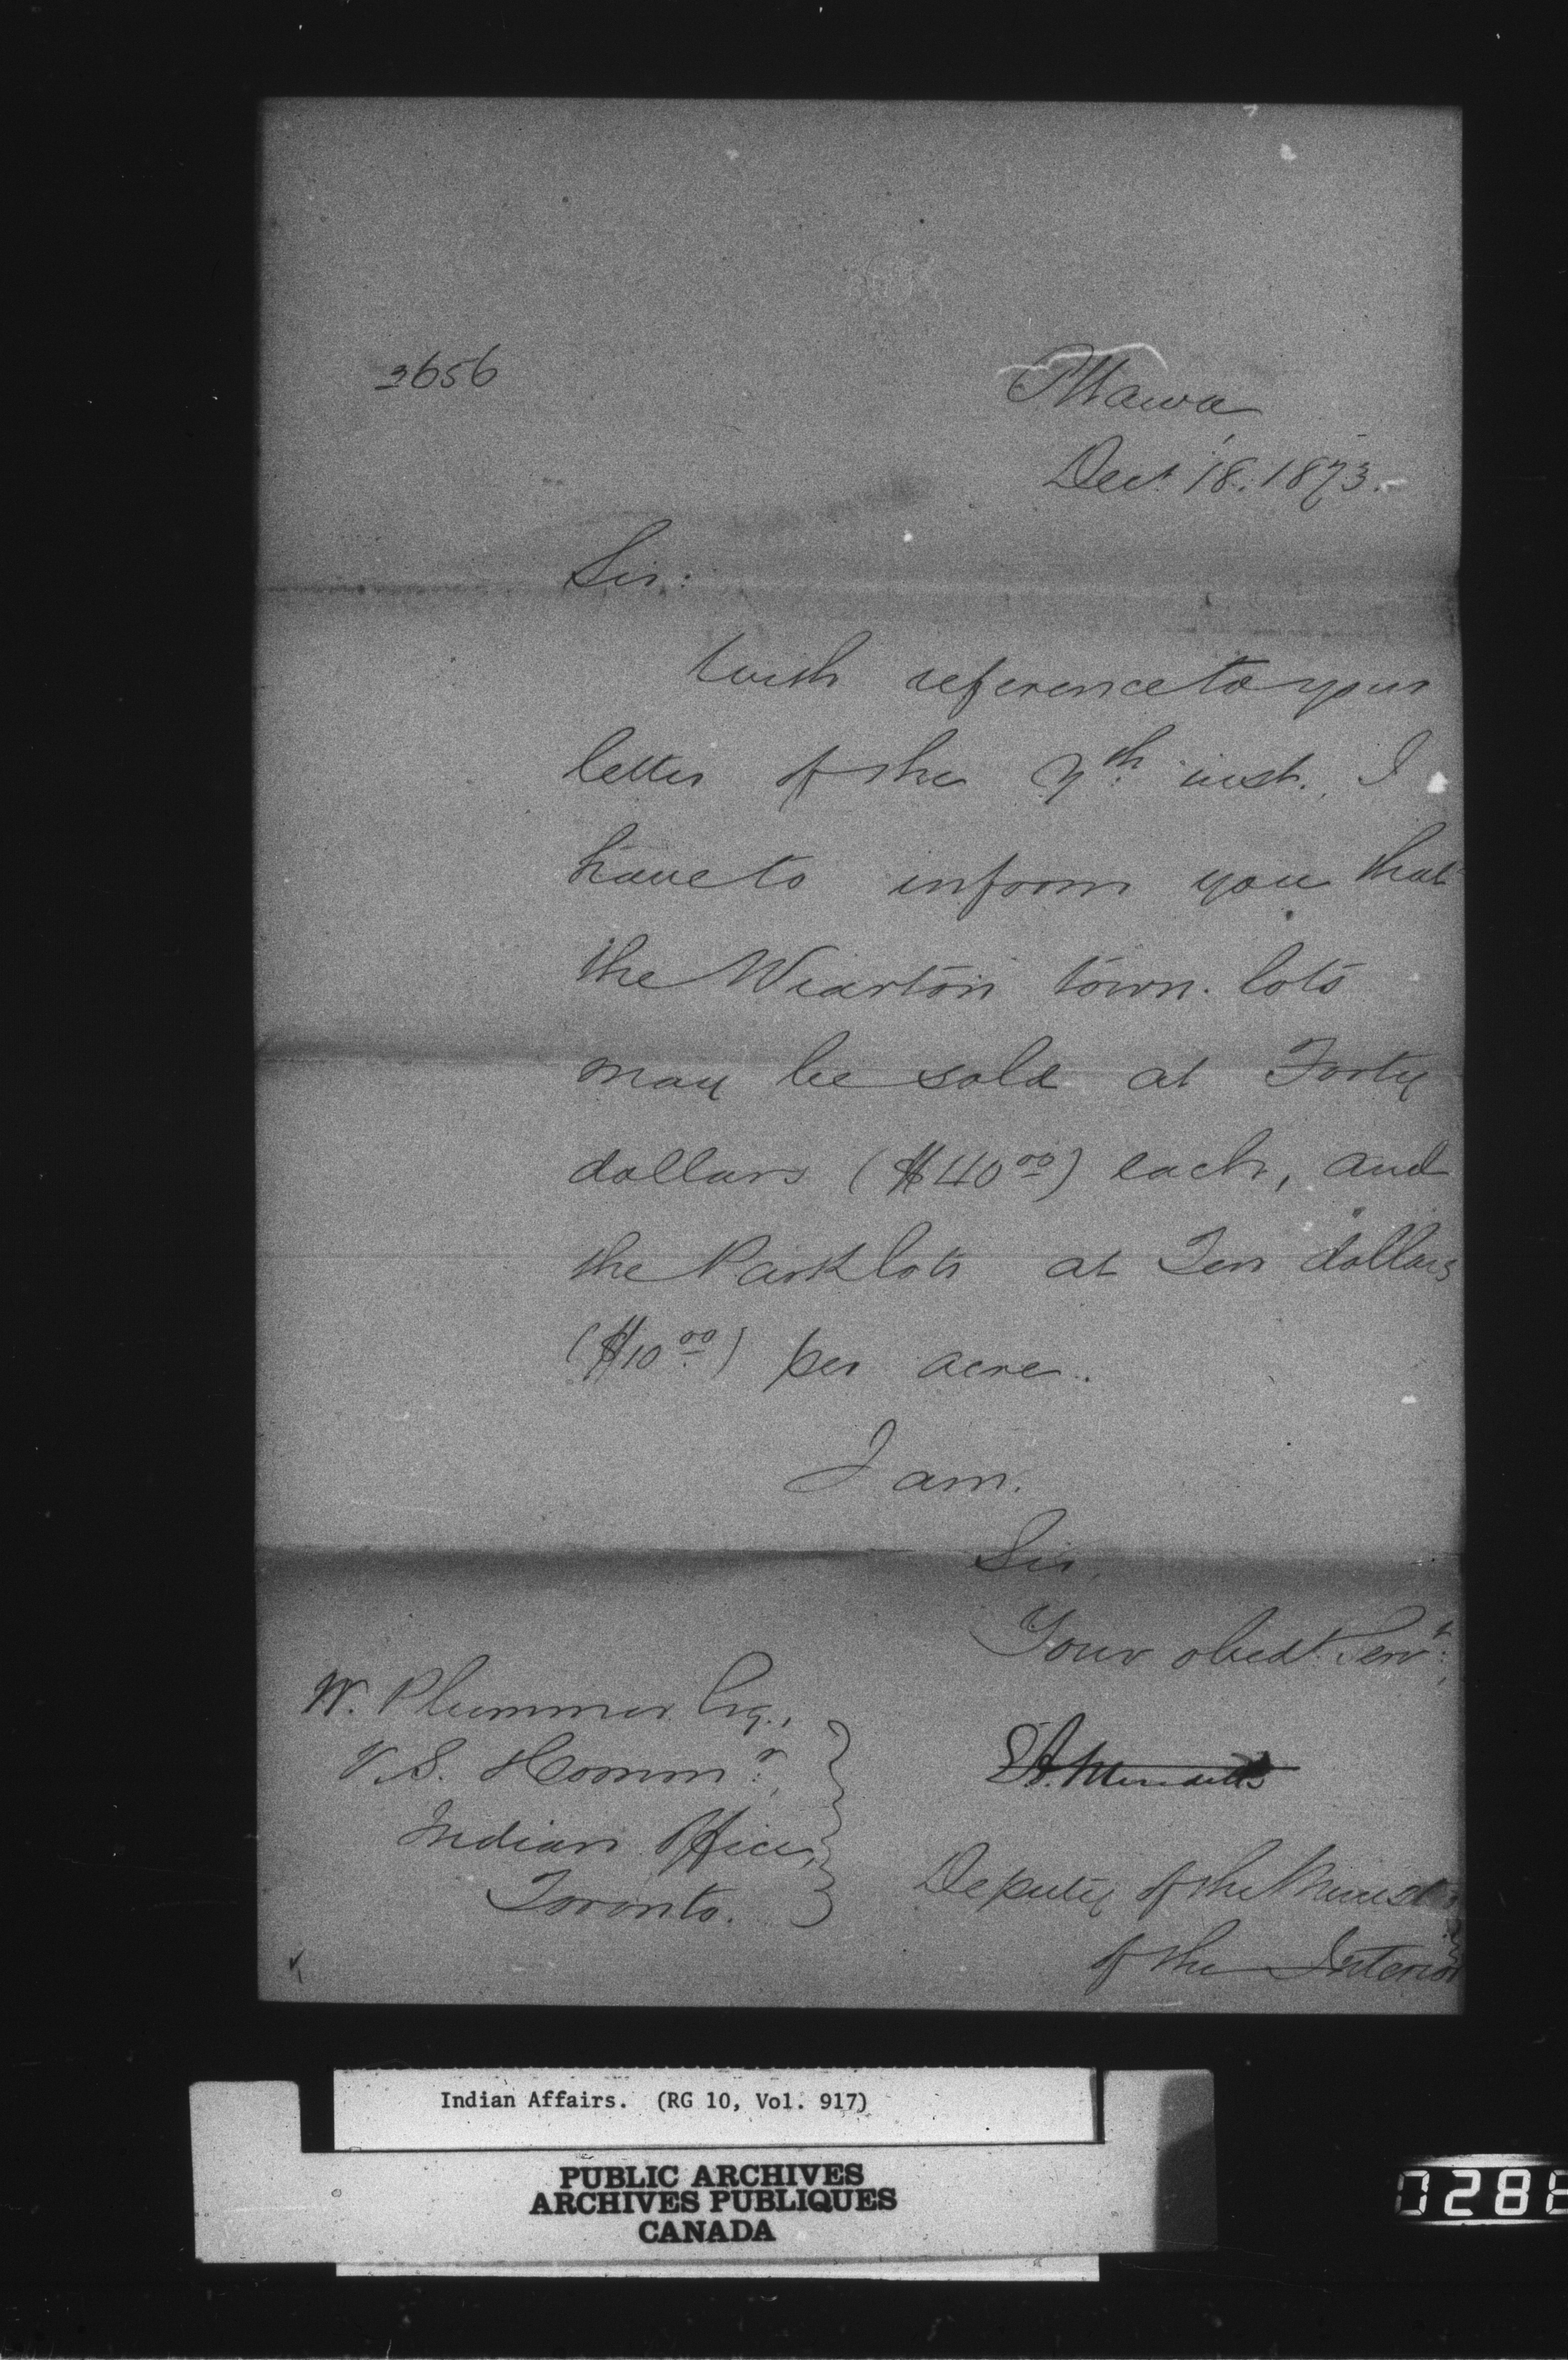 3656
Ottawa,
Dect. 18. 1873.
Sir:
With reference to your
letter of the 7th inst. I
have to inform you that
the Wiarton town lots
may be sold at Forty
dollars ($40.00) each, and
the Park lots at Ten dollars
($10.00) per acre.
I am.
Sir,
Your obedt. Servt.,
E A. Meredith
Deputy of the Minister
of the Interior
W. Plummer Esq.,
V. S. Commr.
Indian Office,
Toronto.
Indian Affairs. (RG 10, Vol. 917)
PUBLIC ARCHIVES
ARCHIVES PUBLIQUES
CANADA